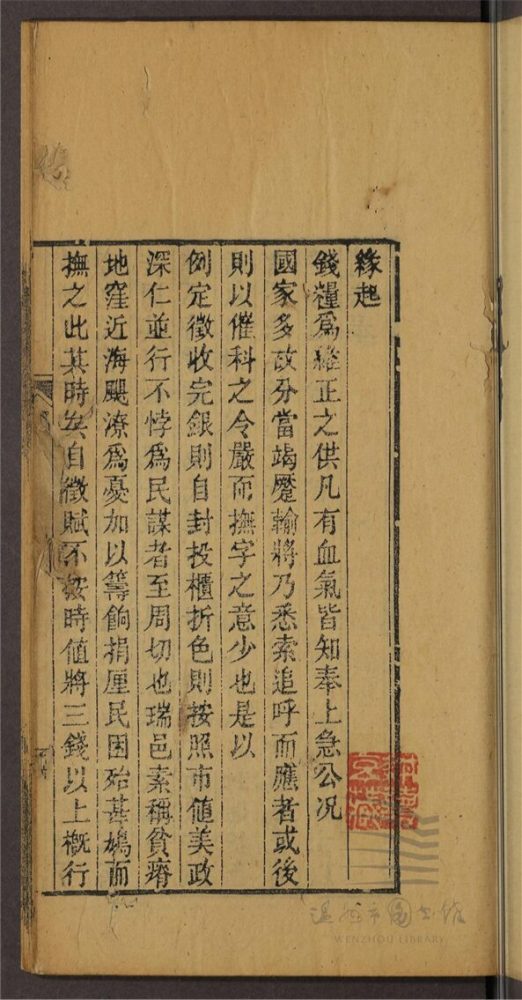 緣起
錢糧爲維正之供凡有血氣皆知奉上急公况
國家多故分當竭蹷輸將乃悉索追呼而應者或後
則以催科之令嚴而撫字之意少也是以
例定徵收完銀則自封投櫃折色則按照市値美政
深仁並行不悖爲民謀者至周切也瑞邑素稱貧瘠
地窪近海颶潦爲憂加以籌餉捐厘民困殆甚鳩而
撫之此其時矣自徵賦不按時値將三錢以上槪行
温州市圖書館
WENZHOU LIBRARY